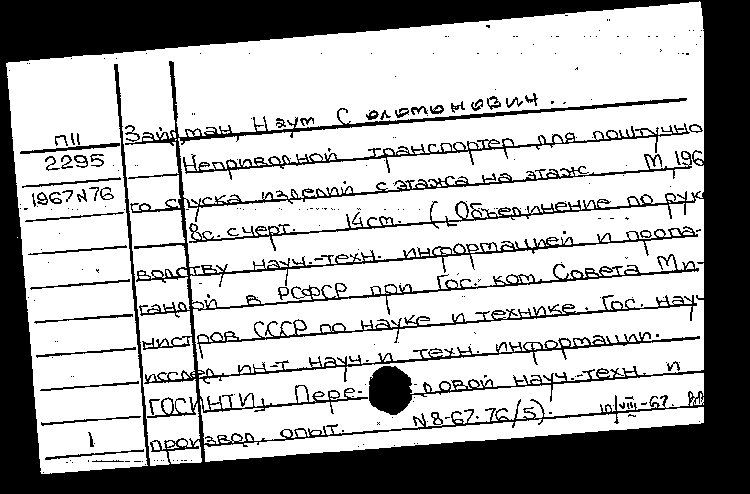 П11
2295
1967 N76
1
Зайдман, Наум Соломонович..
Неприводной транспортер для поштучно
го спуска изделий с этажа на этаж. М, 196
8с. с черт. 14см. („Объединение по руко
водству науч.-техн. информацией и пропа-
гандой в РСФСР при Гос. ком. Совета Ми-
нистров СССР по науке и технике. Гос. науч
исслед. ин-т науч. и техн. информации.
ГОСИНТИ„. Передовой науч.-техн. и
производ. опыт. N8-67-76/5).